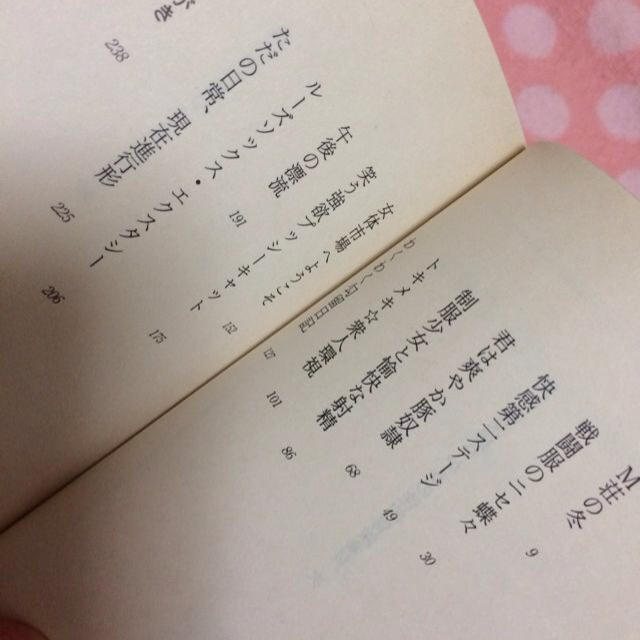 M荘の冬 9
戦闘服のニセ蝶々 30
快感第二ステージ 49
君は爽やか豚奴隷 68
制服少女と愉快な射精 86
トキメキ☆衆人環視 101
わくわく 日記 127
女体市場へようこそ 152
笑う強欲プッシーキャット 175
午後の漂流 191
ルーズソックス・エクスタシー 206
ただの日常、現在進行形 225
がき 238